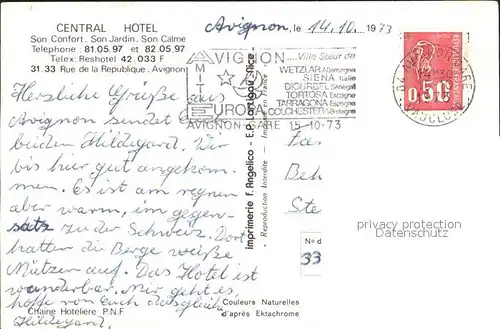 CENTRAL HOTEL
Son Confort. Son Jardin. Son Calme
Telephone : 81.05.97 et 82.05.97
Telex: Reshotel 42 033 F
31.33 Rue de la Republique. Avignon
Avignon, le 14.10. 1973
AVIGNON
.... Ville Soeur de
WETZLAR Allemagne
SIENA Italie
DIOURBEL Sénégal
TORTOSA Espagne
TARRAGONA Espagne
COLCHESTER
AMITIE
EUROPA
AVIGNON GARE 15-10-73
0,50
VAUCLUSE
Herzliche Grüße aus
Avignon sendet
Hildegard. Wir
bis hier gut angekom-
men. Es ist am regnen
aber warm, im gegen-
satz zu der Schweiz. Dort
hatten die Berge weiße
Mützen auf. Das Hotel ist
wunderbar. Mir geht es,
hoffe von euch dasgleiche
Hildegard.
Imprimerie f. Angelico - E.P.
Reproduction Interdite
Fas
Beh
Ste
privacy protection
Datenschutz
No d
33
Chaine Hoteliere P.N.F
Couleurs Naturelles
d'après Ektachrome